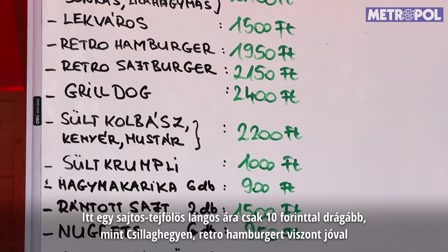 METROPOL
SONKÁS, LILAHAGYMÁS
- LEKVÁROS : 1500 Ft
- RETRO HAMBURGER : 1950 Ft
- RETRO SAJTBURGER : 2150 Ft
- GRILL DOG : 2400 Ft
- SÜLT KOLBÁSZ,
KENYÉR, MUSTÁR } : 2200 Ft
- SÜLT KRUMPLI : 1000 Ft
- HAGYMAKARIKA 6db : 900 Ft
- RÁNTOTT SAJT 2db : 1500 Ft
- NUGGETS
Itt egy sajtos-tejfölös lángos ára csak 10 forinttal drágább,
mint Csillaghegyen, retro hamburgert viszont jóval